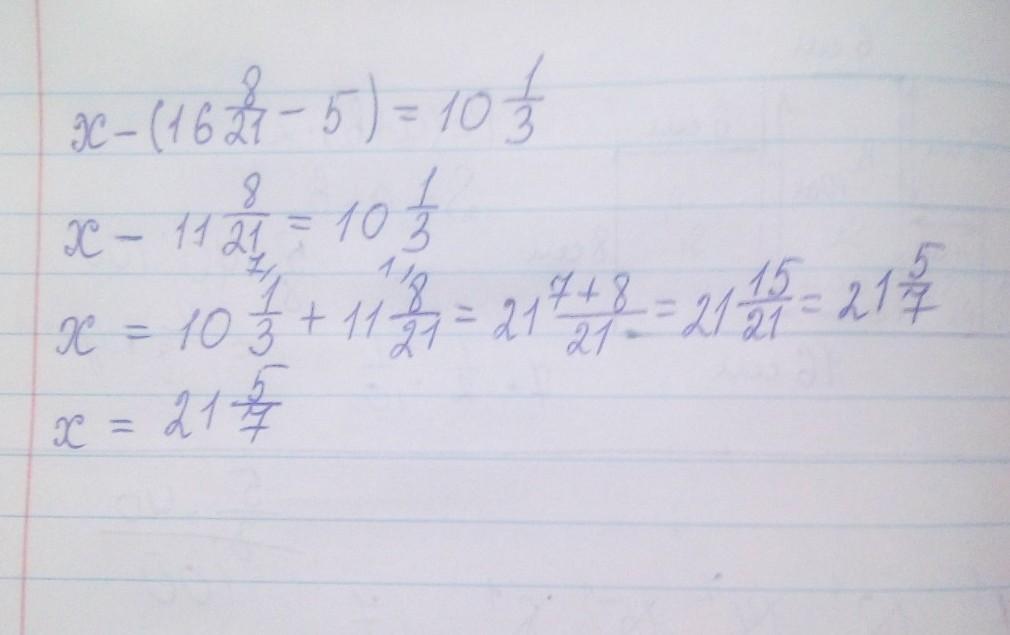 x - (16 8/21 - 5) = 10 1/3
x - 11 8/21 = 10 1/3
x = 10 1/3 (7/ + 11 8/21 (1/ = 21 7+8/21 = 21 15/21 = 21 5/7
x = 21 5/7